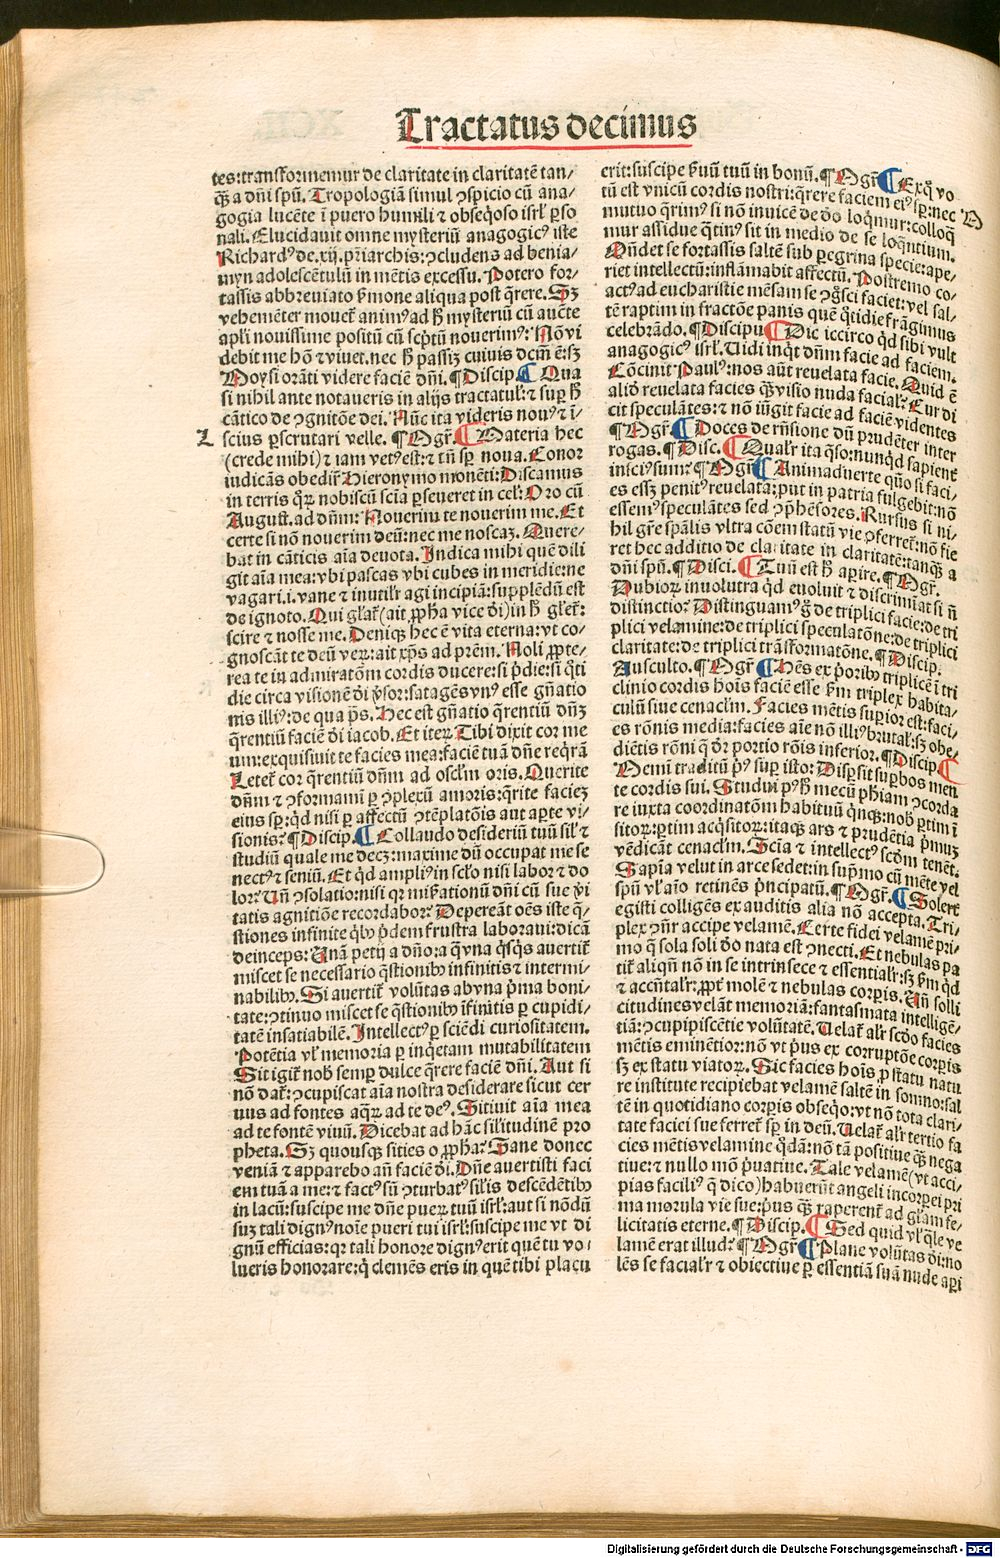 Tractatus decimus
tes:transformemur de claritate in claritatē tan/
q̄ȝ a dn̄i spū. Tropologiā simul ꝯspicio cū ana/
gogia lucēte ī puero humili ⁊ obseq̄oso isrl̓ ꝑso
nali. Elucidauit omne mysteriū anagogicꝰ iste
Richardꝰ de .xij. pr̄iarchis:ꝯcludens ad benia/
myn adolescētulū in mētis excessu. Potero for/
tassis abbreuiato ẜmone aliqua post q̄rere. Sȝ
vehemēter mouet̄ animꝰ ad h̄ mysteriū cū aucte
apl̓i nouissime positū cū sc̄ptū nouerimꝰ: Nō vi
debit me hō ⁊ viuet. nec h̄ passiȝ cuiuis dcm̄ ē:sȝ
Moysi orāti videre faciē dn̄i. ¶Discip. ¶ Qua
si nihil ante notaueris in alijs tractatul̓:⁊ suꝑ h̄
cātico de ꝯgnitōe dei. Nūc ita videris nouꝰ ⁊ ī/
L
scius ꝑscrutari velle. ¶Mgr̄. ¶ Materia hec
(crede mihi) ⁊ iam vetꝰ est:⁊ tn̄ sꝑ noua. Conor
iudicās obedir̄ Hieronymo monēti: Discamus
in terris qꝝ nobiscū sciā ꝑseueret in cel̓: Oro cū
August. ad dn̄m: Nouerim te nouerim me. Et
certe si nō nouerim deū:nec me noscaȝ. Quere/
bat in cāticis aīa deuota. Indica mihi quē dili
git aīa mea:vbi pascas vbi cubes in meridie:ne
vagari.i. vane ⁊ inutilr̄ agi incipiā:suppledū est
de ignoto. Qui gl̓at̄ (ait ꝓph̄a vice d̄i) in h̄ gl̓et̄:
scire ⁊ nosse me. Deniqȝ hec ē vita eterna:vt co/
gnoscāt te deū veꝝ:ait xp̄s ad prēm. Noli ꝓpte/
rea te in admiratōm cordis ducere:si p̄die:si q̄ti
die circa visionē d̄i p̄sor:satagēs vnꝰ esse gn̄atio
nis illiꝰ:de qua ps̄. Hec est gn̄atio q̄rentiū dn̄ȝ
q̄rentiū faciē d̄i iacob. Et iteꝝ Tibi dixit cor me
um:exquisiuit te facies mea:faciē tuā dn̄e reqrā
Letet̄ cor q̄rentiū dn̄m ad oscl̓m oris. Querite
dn̄m ⁊ ꝯformami ꝑ ꝯplexū amoris:q̄rite facieȝ
eius sꝑ:q̄d nisi ꝑ affectū ꝯtēplatōis aut aꝑte vi/
sionis: ¶Discip. ¶ Collaudo desideriū tuū sil̓ ⁊
studiū quale me deceȝ:maxime dū occupat me se
nectꝰ ⁊ seniū. Et q̄d ampliꝰ in sclo nisi labor ⁊ do
lor: Uñ ꝯsolatio:nisi qr miꝑationū dn̄i cū sue p̄i
tatis agnitiōe recordabor: Depereāt oēs iste q̄/
stiones infinite q̄bꝰ p̄dem frustra laboraui:dicā
deinceps: Unā petij a dn̄o:a q̄ vna q̄sq̄s auertit̄
miscet se necessario q̄stionibꝰ infinitis ⁊ intermi/
nabilibꝰ. Si auertit̄ volūtas ab vna p̄ma boni/
tate:ꝯtinuo miscet se q̄stionibꝰ īfinitis ꝑ cupidi/
tatē insatiabilē. Intellectꝰ ꝑ sciēdi curiositatem.
Potētia vl̓ memoria ꝑ inq̄etam mutabilitatem
Sit igit̄ nob̄ semꝑ dulce q̄rere faciē dn̄i. Aut si
nō dat̄:ꝯcupiscat aīa nostra desiderare sicut cer
uus ad fontes aqꝝ ad te deꝰ. Sitiuit aīa mea
ad te fontē viuū. Dicebat ad hāc sil̓itudinē pro
pheta. Sȝ quousqȝ sities o ꝓph̄a: Sane donec
veniā ⁊ apparebo an̄ faciē d̄i. Dn̄e auertisti faci
em tuā a me:⁊ factꝰ sū ꝯturbatꝰ sil̓is descēdētibꝰ
in lacū:suscipe me dn̄e pueꝝ tuū isrl̓:aut si nōdū
suȝ tali dignꝰ noīe pueri tui isrl̓:suscipe me vt di
gnū efficias:qr tali honore dignꝰ erit quē tu vo/
lueris honorare:q̄ clemēs eris in quē tibi placu
erit:suscipe ẜuū tuū in bonū. ¶Mgr̄ ¶ Exq̄ vo
tū est vnicū cordis nostri:q̄rere faciem eiꝰ sꝑ:nec
M
mutuo q̄rimꝰ si nō inuicē de d̄o loq̄mur:colloq̄
mur assidue q̄tinꝰ sit in medio de se loq̄ntium.
Oñdet se fortassis saltē sub ꝑegrina specie:ape/
riet intellectū:inflāmabit affectū. Postremo co/
actꝰ ad eucharistie mēsam se ꝯg̓sci faciet:vel sal/
tē raptim in fractōe panis quē q̄tidie frāgimus
celebrādo. ¶Discipu. ¶ Dic iccirco q̄d sibi vult
anagogicꝰ isrl̓. Uidi inq̄t dn̄m facie ad faciem.
Cōcinit Paulꝰ:nos aūt reuelata facie. Quid ē
aliō reuelata facies q̄ȝ visio nuda facial̓: Cur di
cit speculātes:⁊ nō iūgit facie ad faciē videntes
¶Mgr̄. ¶ Doces de rn̄sione dū prudēter inter
rogas. ¶Disc. ¶ Qualr̄ ita q̄so:nunq̄d sapient̄
insciꝰ sum: ¶Mgr̄ ¶ Animaduerte quō si faci/
es essȝ penitꝰ reuelata:put in patria fulgebit:nō
essemꝰ speculātes sed ꝯp̄hēsores. Rursus si ni/
hil gr̄e sp̄alis vltra cōem statū vie ꝯferret̄:nō fie
ret hec additio de claritate in claritatē:tanqȝ a
dn̄i spū. ¶Disci. ¶ Tuū est h̄ aꝑire. ¶Mgr̄.
Dubioꝝ inuolutra q̄d euoluit ⁊ discriminat si n̄
distinctio: Distinguamꝰ g̊ de triplici facie:de tri
plici velamine:de triplici speculatōne:de triplici
claritate:de triplici trāsformatōne. ¶Discip.
Ausculto. ¶Mgr̄ ¶ Hēs ex p̄oribꝰ triplicē ī tri
clinio cordis hoīs faciē esse ẜm triplex habita/
culū siue cenacl̓m. Facies mētis suꝑior est:faci/
es rōnis media:facies aīe nō illiꝰ brutal̓:sȝ obe/
diētis rōni q̄ d̄r portio rōis inferior. ¶Discip ¶
Nemī traditū pꝰ suꝑ isto: Disꝑsit suꝑbos men
te cordis sui. Studui pꝰ h̄ mecū ph̄iam ꝯcorda
re iuxta coordinatōm habituū q̄nqȝ:nob̄ ꝑtim ī
sitoꝝ:ꝑtim acq̄sitoꝝ:itaqȝ ars ⁊ prudētia p̄muȝ
vēdicāt cenacl̓m. Scia ⁊ intellectꝰ scd̄m tenēt.
Sapīa velut in arce sedet:in sup̄mo cū mēte vel
spū vl̓ aīo retinēs p̄ncipatū. ¶Mgr̄. ¶ Solert̄
egisti colligēs ex auditis alia nō accepta. Tri/
plex ꝯn̄r accipe velamē. Certe fidei velamē pri/
mo q̄ sola soli d̄o nata est ꝯnecti. Et nebulas pa
tit̄ aliqn̄ nō in se intrinsece ⁊ essentialr̄:sȝ ẜm q̄d
⁊ accn̄talr̄:ꝓpt̄ molē ⁊ nebulas corꝑis. Uñ solli
citudines velāt memoriā:fantasmata intelligē/
tiā:ꝯcupiscētie volūtatē. Uelat̄ al̓r scd̄o facies
mētis eminētior:nō vt p̄us ex corruptōe corꝑis
sȝ ex statu viatoꝝ. Sic facies hoīs ꝓ statu natu
re institute recipiebat velamē saltē in somno:sal
tē in quotidiano corꝑis obseq̄o:vt nō tota clari/
tate faciei sue ferret̄ sꝑ in deū. Uelat̄ al̓r tertio fa
cies mētis velamine q̄dā:nō tā positiue q̄ȝ nega
tiue:⁊ nullo mō p̄uatiue. Tale velamē (vt acci/
pias faciliꝰ q̄ dico) habuerūt angeli incorꝑei pri
ma morula vie sue:p̄us q̄ȝ raperent̄ ad gl̓iam fe/
licitatis eterne. ¶Discip. ¶ Sed quid vl̓ q̄le ve
lamē erat illud: ¶Mgr̄ ¶ Plane volūtas d̄i:no
lēs se facialr̄ ⁊ obiectiue ꝑ essentiā suā nude aꝑi
Digitalisierung gefördert durch die Deutsche Forschungsgemeinschaft - DFG